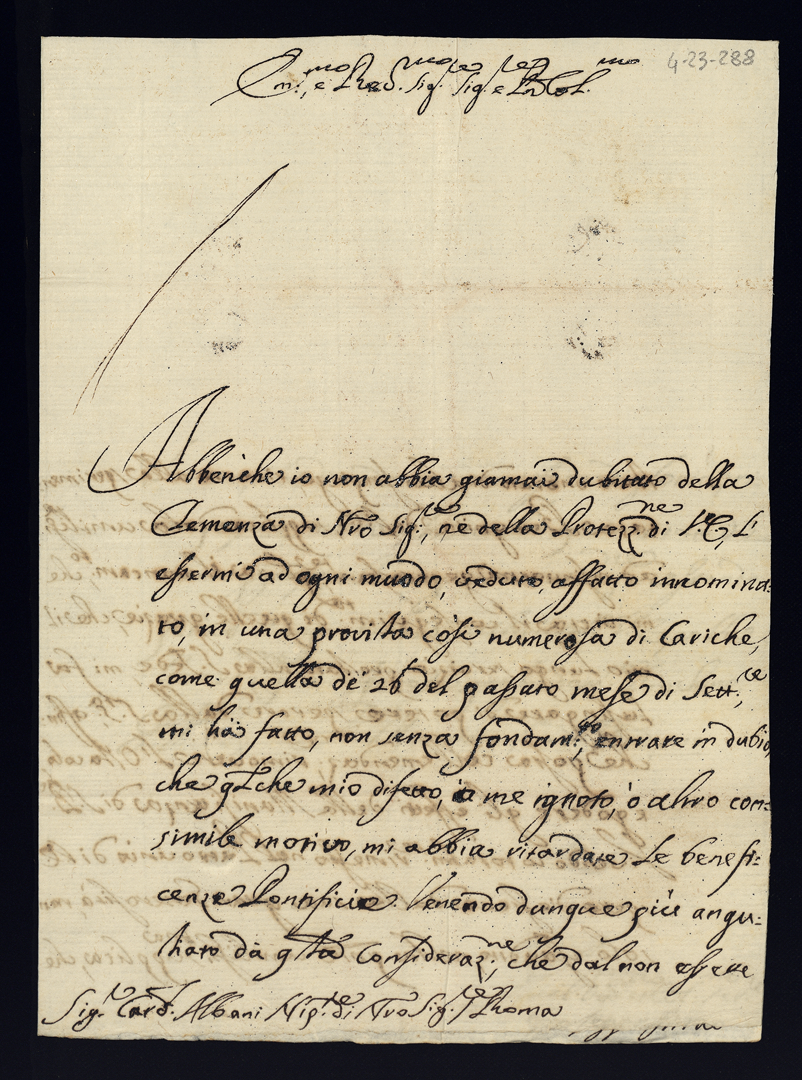 4-23-288
Em.mo, e Rev.mo Sig.re Sig.re e P.ron Col.mo
Abbenche io non abbia giamai dubitato della
Clemenza di Nrõ Sig.re, ne della Protez.ne di V.E, l'
essermi ad ogni muodo, veduto, affatto innomina=
to, in una provista così numerosa di Cariche,
come quella de' 26 del passato mese di Sett.re,
mi hà fatto, non senza fondam.to, entrare in dubio,
che qlche mio difetto, à me ignoto, ò altro con=
simile motivo, mi abbia ritardate le benefi=
cenze Pontificie. Venendo dunque più angu=
stiato dà q.sta Consideraz.ne, che dal non essere
Sig.r Card. Albani Nip.te di Nrõ Sig.re Roma